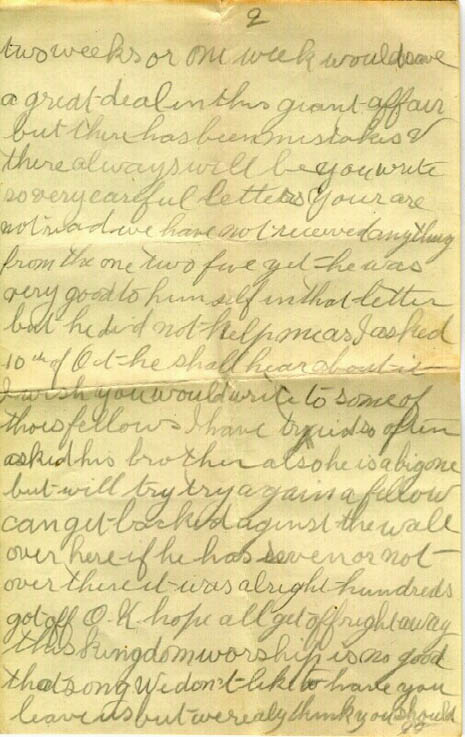 2
two weeks or one week would save
a great deal in this giant affair
but there has been mistakes &
there always will be you write
so very careful letters yours are
not read we have not received anything
from the one two five yet he was
very good to him self in that letter
but he did not help me as I asked
10th of Oct he shall hear about it
I wish you would write to some of
thois fellows I have tryied so often
asked his brother also he is a big one
but will try try again a fellow
can get backed against the wall
over here if he has seven or not
over there it was alright hundreds
got off O.K. hope all get off right away
this kingdom worship is no good
that song We don't like to have you
leave us but we realy think you should
go